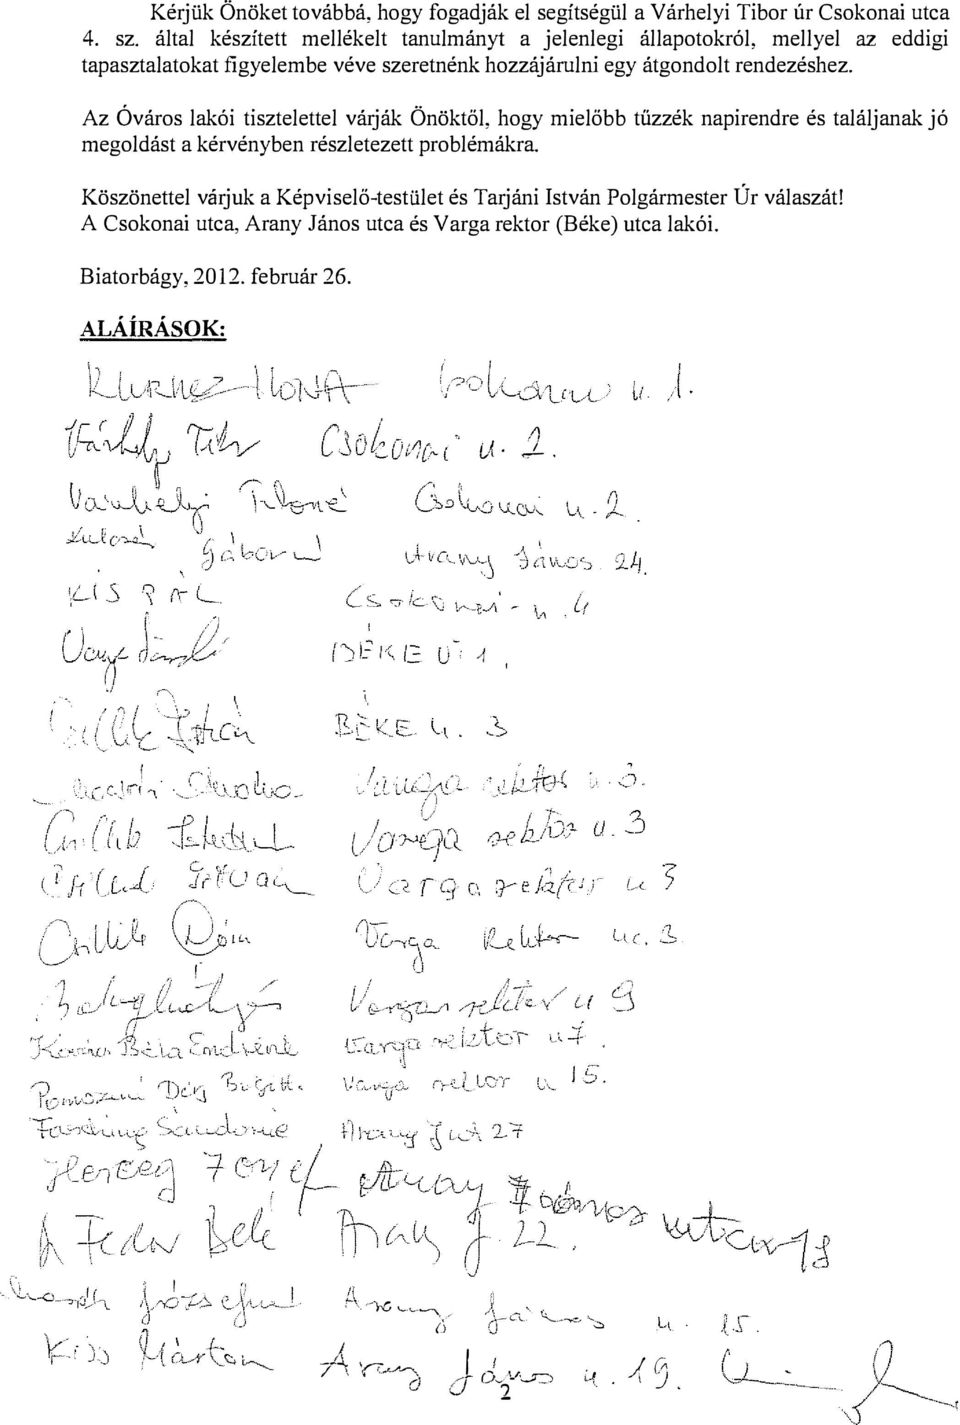 Kérjük Önöket továbbá, hogy fogadják el segítségül a Várhelyi Tibor úr Csokonai utca
4. sz. által készített mellékelt tanulmányt a jelenlegi állapotokról, mellyel az eddigi
tapasztalatokat figyelembe véve szeretnénk hozzájárulni egy átgondolt rendezéshez.
Az Óváros lakói tisztelettel várják Önöktől, hogy mielőbb tűzzék napirendre és találjanak jó
megoldást a kérvényben részletezett problémákra.
Köszönettel várjuk a Képviselő-testület és Tarjáni István Polgármester Úr válaszát!
A Csokonai utca, Arany János utca és Varga rektor (Béke) utca lakói.
Biatorbágy, 2012. február 26.
ALÁÍRÁSOK:
ILONA Csokonai u. 1.
Csokonai u. 2.
Várhelyi Tiborné Csokonai u. 2.
Gáborné Arany János 24.
KIS PÁL Csokonai u. 4
Varga László BÉKE U. 1.
Csillik István BÉKE u. 3
Varga rektor u. 3.
Csillik Varga rektor u. 3
Csillik István Varga rektor u 3
Csillik Dóra Varga Rektor u. 3.
Varga rektor u 9
Béla Endréné Varga rektor u 7.
Brigitt. Varga rektor u 15.
Sándorné Arany 27
Herceg József Arany János utca 18
Fedor Béla Arany J. 22.
Józsefné Arany János u. 15.
Kiss Márton Arany János u. 19.
2